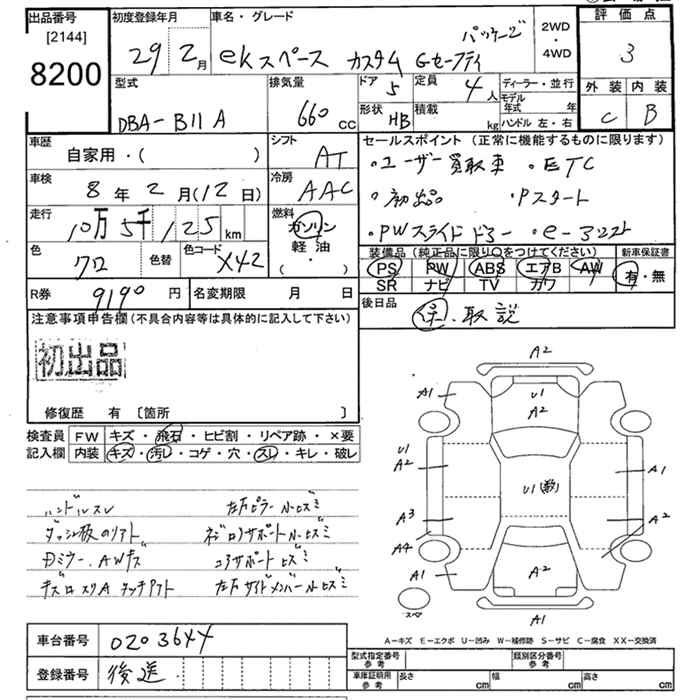 出品番号 [2144] 8200
初度登録年月 29年 2月
車名・グレード ekスペース カスタム Gセーフティ パッケージ
2WD・4WD
評価点 3
外装 C 内装 B
型式 DBA-B11A
排気量 660 cc
ドア 5 定員 4人
形状 HB 積載 kg
ディーラー・並行
モデル年式 年
ハンドル 左・右
車歴 自家用・( )
シフト AT
車検 8年 2月(12日)
冷房 AAC
走行 10万5千125 km
燃料 ガソリン 軽油 ( ・ )
色 クロ 色替 色コード X42
セールスポイント (正常に機能するものに限ります)
・ユーザー買取車 ・ETC
・初出品 ・Pスタート
・PWスライドドアー ・e-
装備品(純正品に限り○をつけてください)
PS PW ABS エアB AW
SR ナビ TV カワ
新車保証書 有・無
R券 9190円 名変期限 月 日
後日品 保・取説
注意事項申告欄(不具合内容等は具体的に記入して下さい)
初出品
修復歴 有 〔箇所 〕
検査員記入欄
FW キズ・飛石・ヒビ割・リペア跡・×要
内装 キズ・汚レ・コゲ・穴・スレ・キレ・破レ
ハンドルスレ
ダッシュ板のリフト
AWキズ
タッチアト
A2
A1 U1 A2
U1 A2 U1(数) A1
A3 A2
A4
A1 A2
スペア A1
A-キズ E-エクボ U-凹み W-補修跡 S-サビ C-腐食 XX-交換済
車台番号 0203644
登録番号 後送
型式指定番号 参考 類別区分番号 参考
車庫証明用 参考 長さ cm 幅 cm 高さ cm